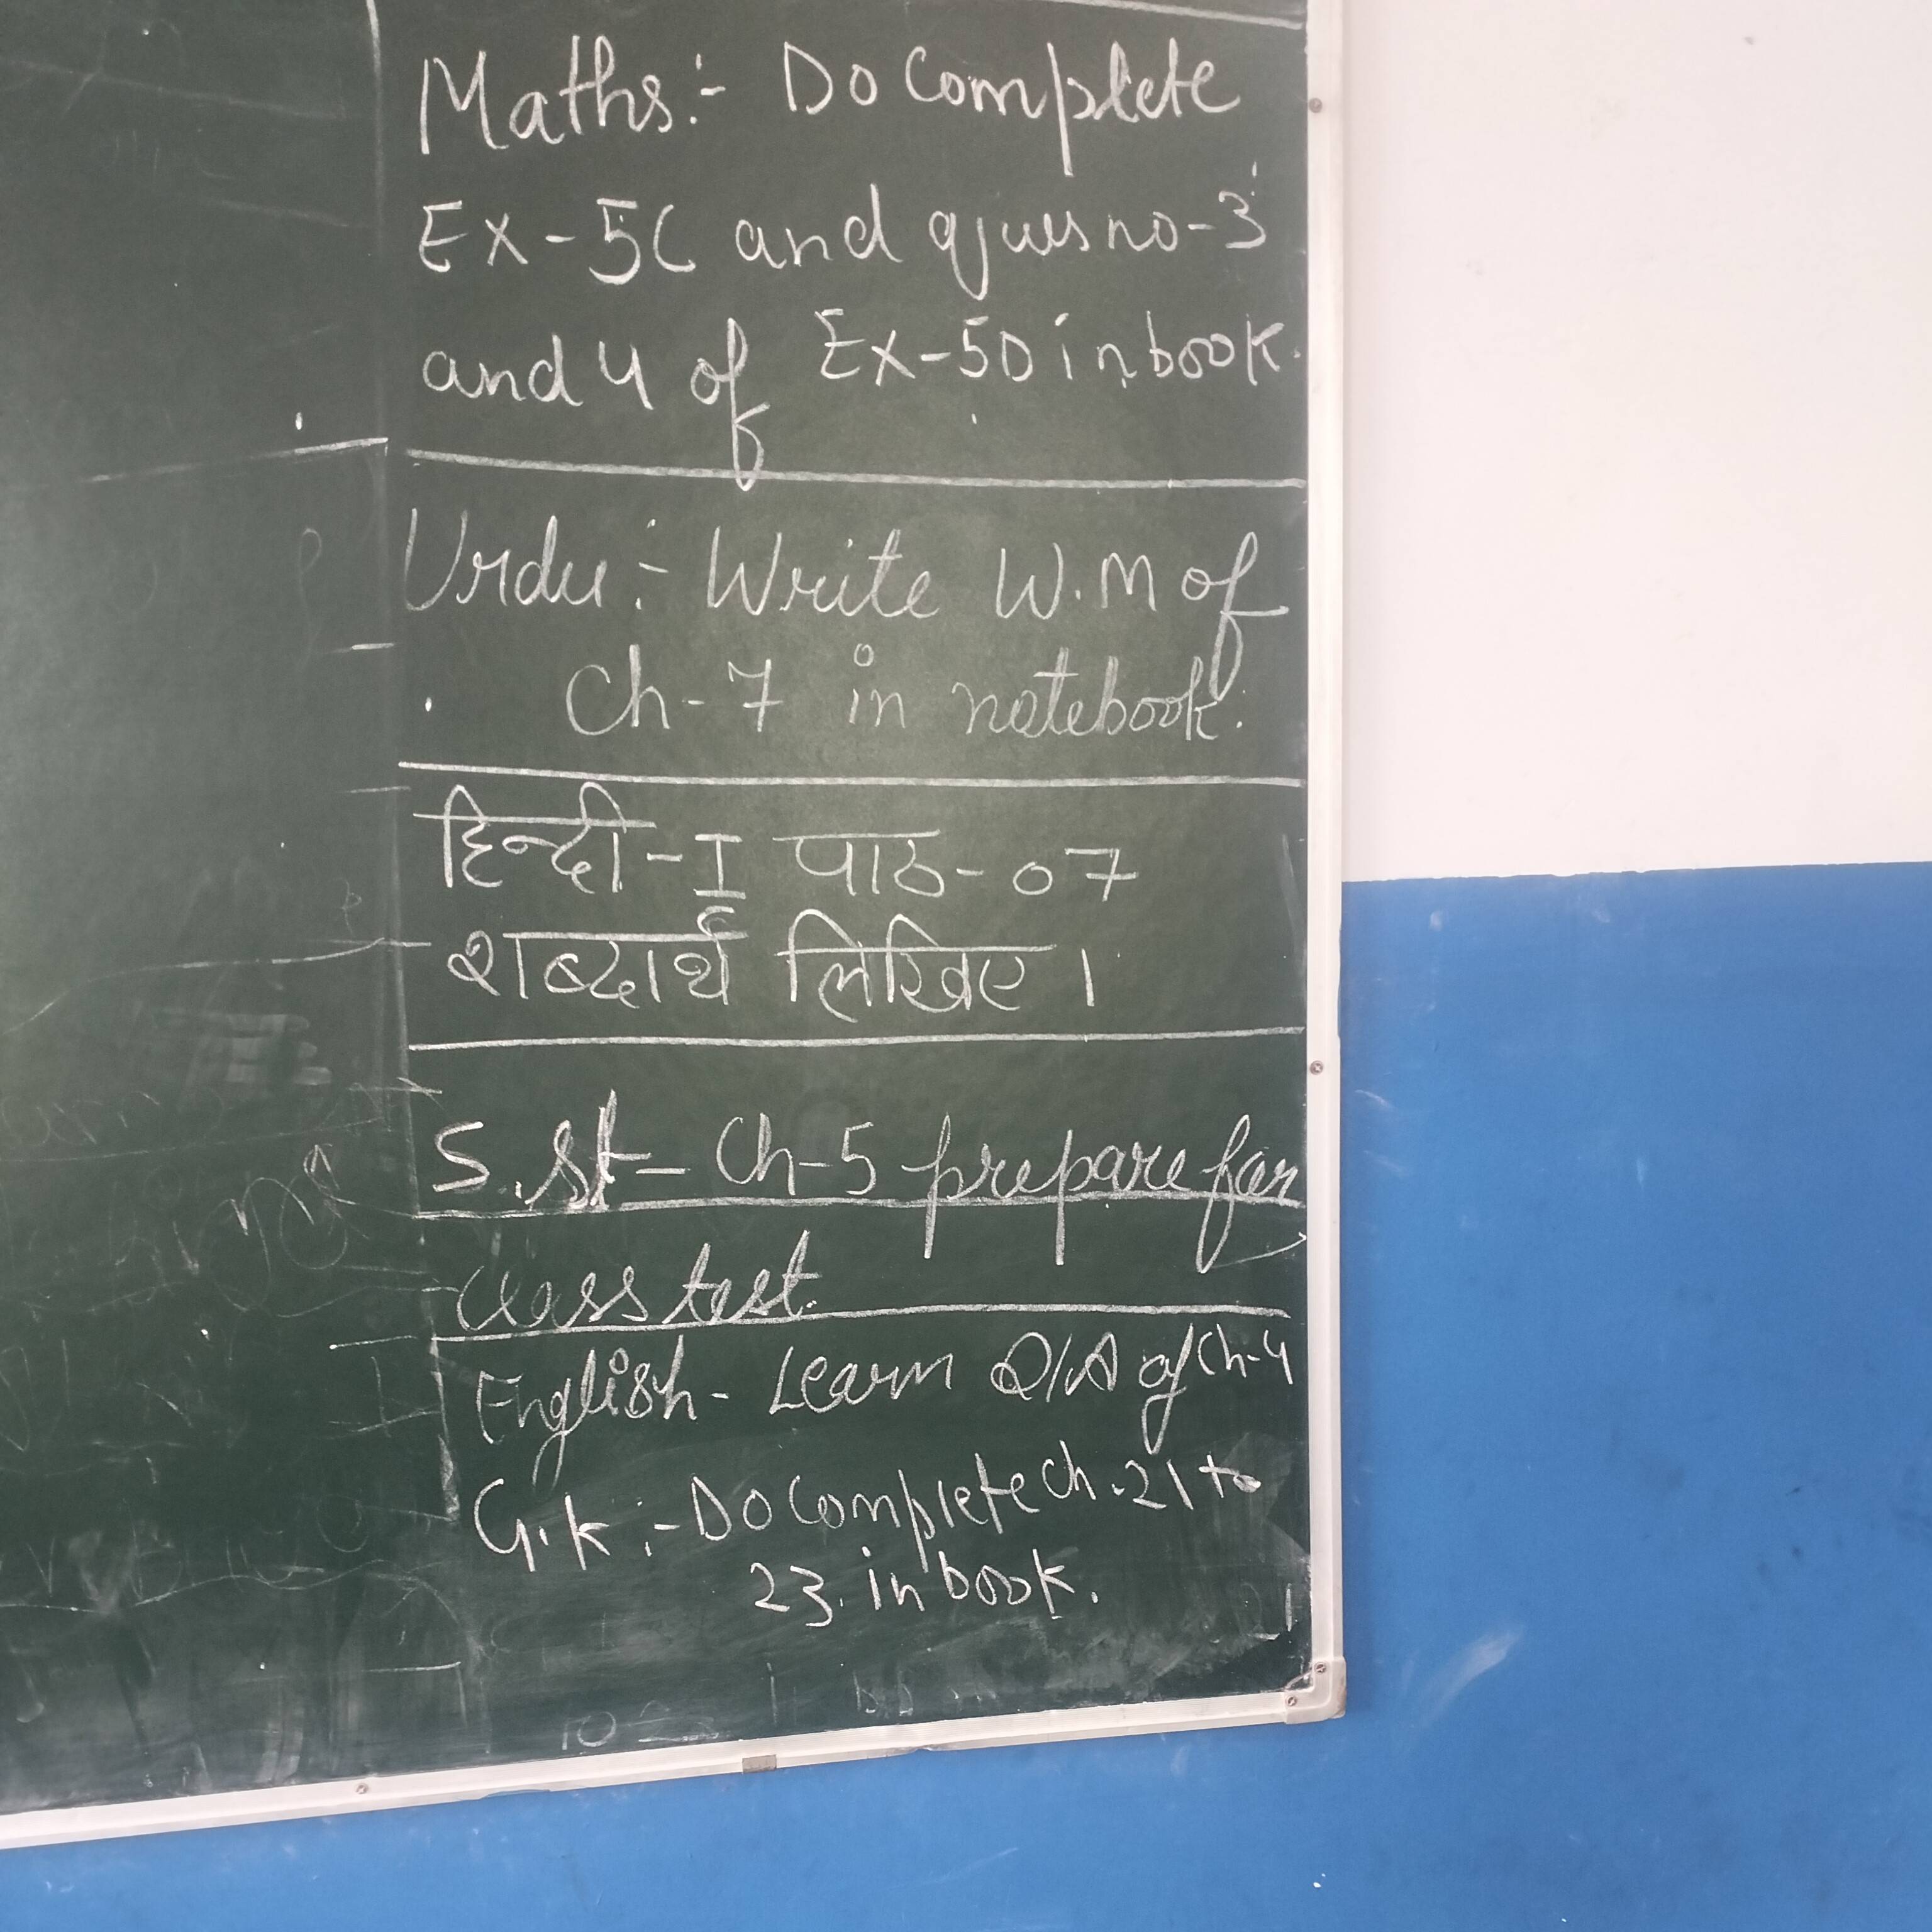 Maths:- Do Complete
Ex-5C and ques no-3
and 4 of Ex-5D in book.
Urdu:- Write W.M of
Ch-7 in notebook.
हिन्दी-I पाठ-07
शब्दार्थ लिखिए।
S.st- Ch-5 prepare for
class test.
English- Learn Q/A of Ch-4
G.K:- Do Complete Ch.21 to
23. in book.